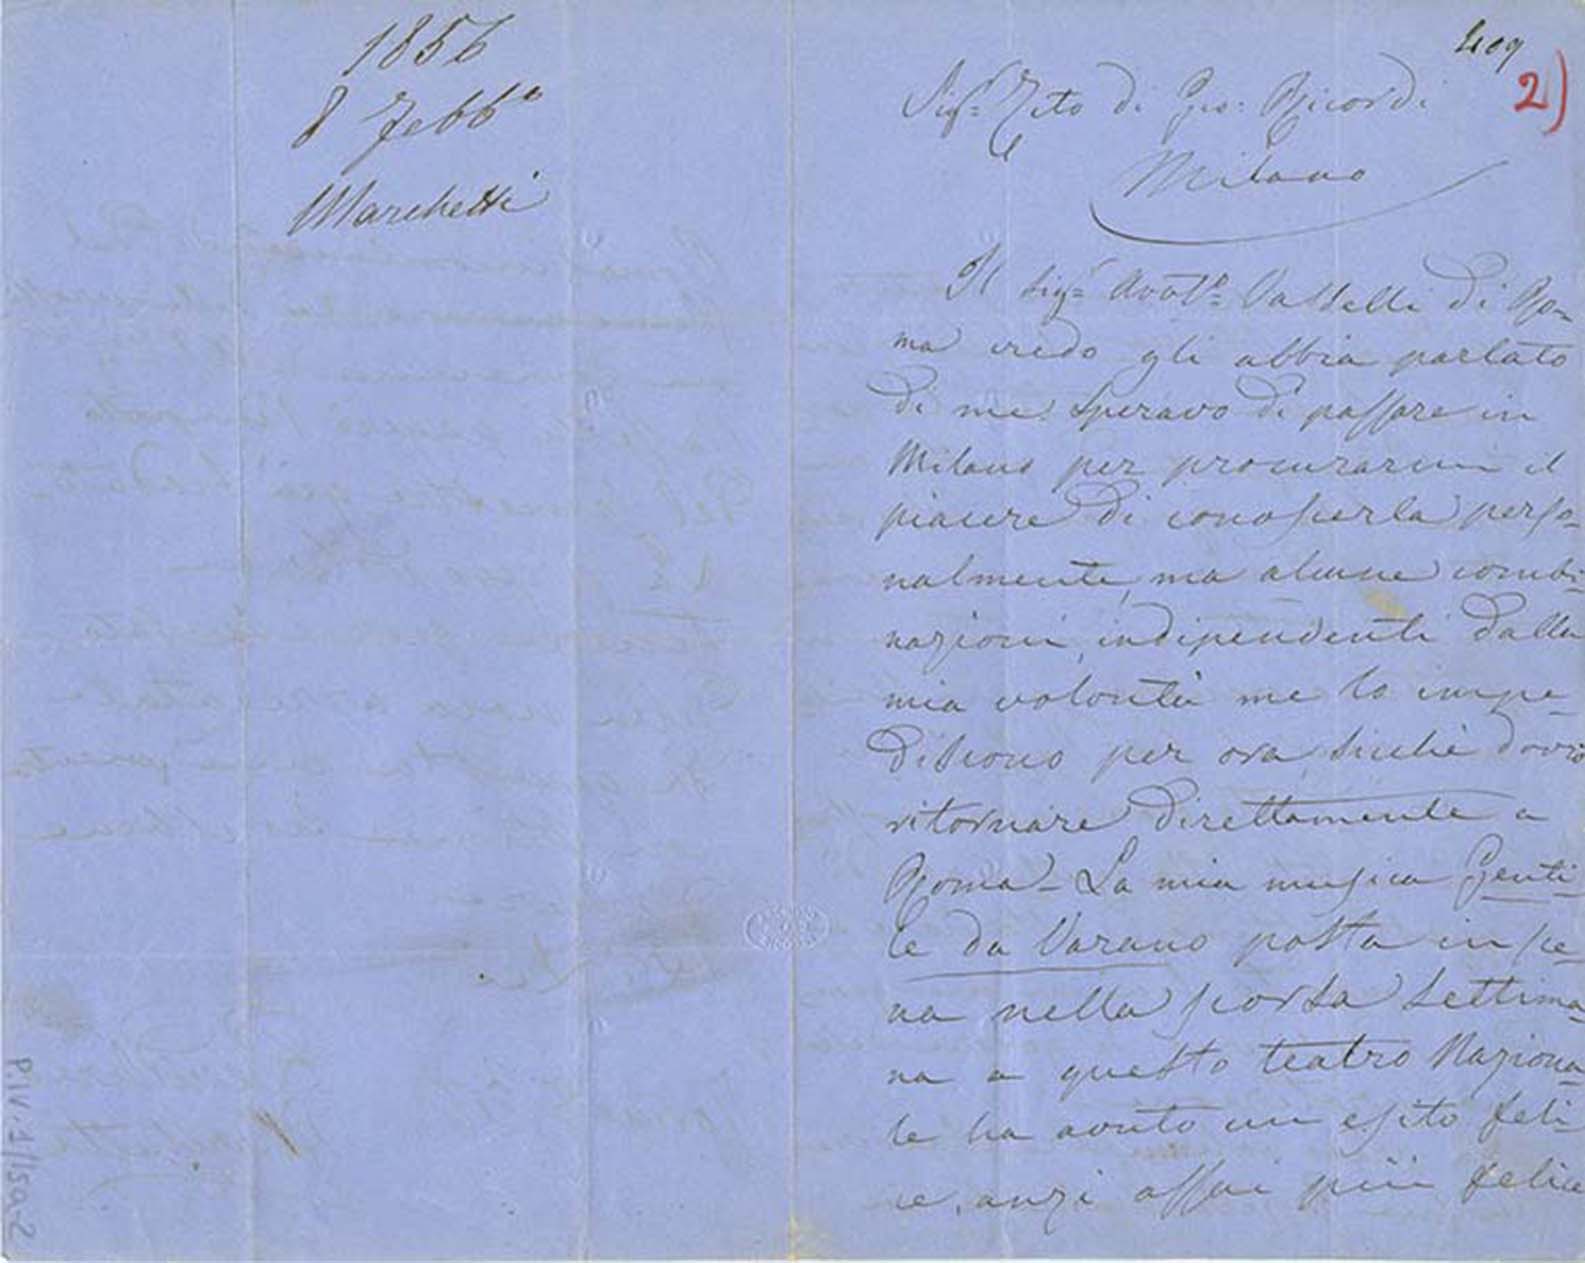 1856
8 Febb°
Marchetti
409
2)
Sigr Tito di Gio: Ricordi
Milano
Il Sigr Avvto Vasselli di Ro-
ma credo gli abbia parlato
di me. Speravo di passare in
Milano per procurarmi il
piacere di conoscerla perso-
nalmente, ma alcune combi-
nazioni, indipendenti dalla
mia volontà me lo impe-
discono per ora, sicchè dovrò
ritornare direttamente a
Roma - La mia musica Genti-
le da Varano posta in sce-
na nella scorsa settima-
na a questo teatro Naziona-
le ha avuto un esito feli-
ce, anzi assai più felice
PIV.1/15a-2